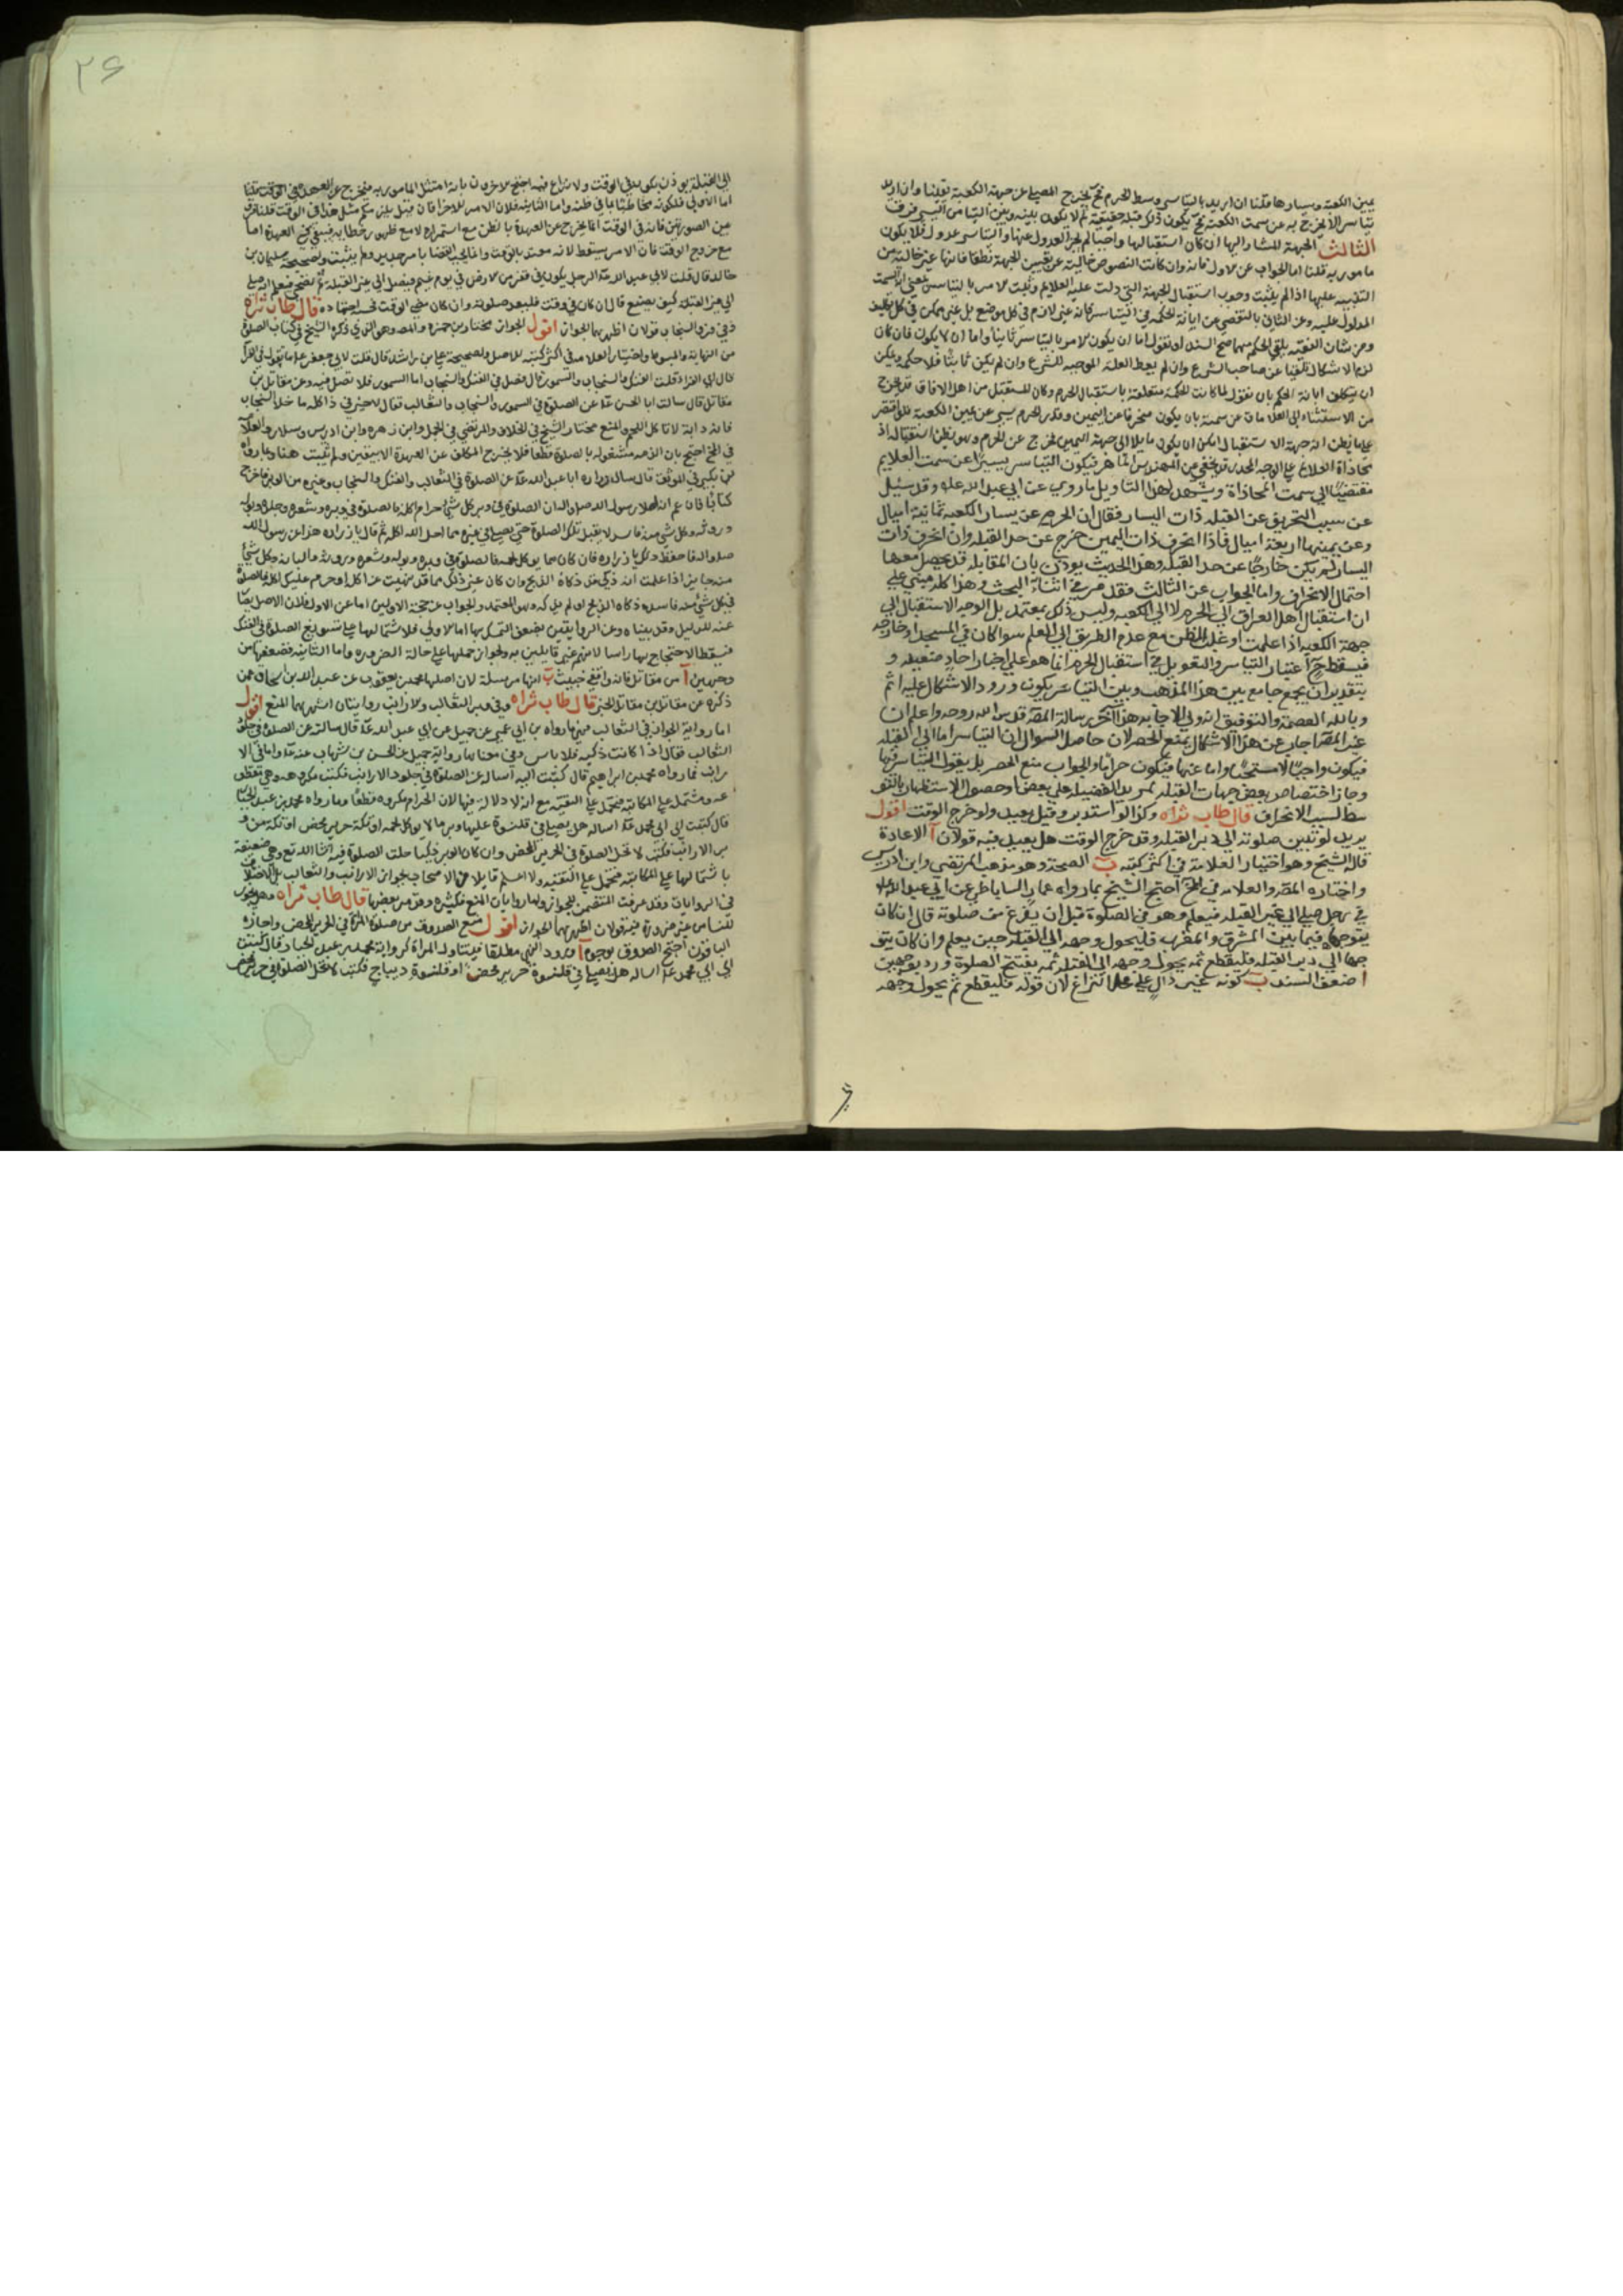 يمين الكعبة ويسارها قلنا ان اريد بالتياسر وسط الحرم فح يخرج المصلي عن جهة الكعبة يقينا وان اريد
تياسر لا يخرج به عن سمت الكعبة فح يكون ذلك قبلة حقيقية ثم لا يكون بينه وبين التيامن اليسير فرق
الثالث الجهة المشار اليها ان كان استقبالها واجبا لم يجز العدول عنها والتياسر عدول فلا يكون
مامورا به قلنا اما الجواب عن الاول فانه وان كانت النصوص خالية عن تعيين الجهة نطقا فانها غير خالية من
التنبيه عليها اذ لم يثبت وجوب استقبال الجهة التي دلت عليه العلايم وثبت الامر بالتياسر بمعنى السمت
المدلول عليه وعن الثاني بالتقصي عن ابانة الحكمة في التياسر فانه غير لازم في كل موضع بل غير ممكن في كل تكليف
ومن شان الفقيه تلقي الحكم مهما صح السند او نقول اما ان يكون الامر بالتياسر ثابتا واما ان لا يكون فان كان
لزم الاشكال تلقيا عن صاحب الشرع وان لم يعط العلة الموجبة للشرع وان لم يكن ثابتا فلا حكم ويمكن
ان يتكلف ابانة الحكم بان نقول لما كانت الحكمة متعلقة باستقبال الحرم وكان المستقبل من اهل الافاق قد يخرج
من الاستثناء الى العلامات عن سمته بان يكون منحرفا عن اليمين وقدر الحرم يسير عن يمين الكعبة فلو اقتصر
على ما يظن انه جهة الاستقبال امكن ان يكون مايلا الى جهة اليمين فيخرج عن الحرم وهو يظن استقباله اذ
محاذاة العلايم على الوجه المحرر قد يخفى على المهندس الماهر فيكون التياسر يسيرا عن سمت العلايم
مفضيا الى سمت المحاذاة ويشهد لهذا التاويل ما روي عن ابي عبد الله عليه وقد سئل
عن سبب التحريف عن القبلة ذات اليسار فقال ان الحرم عن يسار الكعبة ثمانية اميال
وعن يمينها اربعة اميال فاذا انحرف ذات اليمين خرج عن حد القبلة وان انحرف ذات
اليسار لم يكن خارجا عن حد القبلة وهذا الحديث يوذن بان المقابلة قد يحصل معها
احتمال الانحراف واما الجواب عن الثالث فقد مر في اثناء البحث وهذا كله مبني على
ان استقبال اهل العراق الى الحرم لا الى الكعبة وليس ذلك بمعتمد بل الوجه الاستقبال الى
جهة الكعبة اذا علمت او غلب الظن مع عدم الطريق الى العلم سوا كان في المسجد او خارجه
فيسقط ح اعتبار التياسر والتعويل في استقبال الحرم انما هو على اخبار احاد ضعيفة و
بتقدير ان يجمع جامع بين هذا المذهب وبين التياسر يكون ورود الاشكال عليه اتم
وبالله العصمة والتوفيق انه ولي الاجابة هذا آخر رسالة المصنف قدس الله روحه واعلم ان
غير المصنف اجاب عن هذا الاشكال بمنع الحصر لان حاصل السوال ان التياسر اما الى القبلة
فيكون واجبا لا مستحبا واما عنها فيكون حراما والجواب منع الحصر بل نقول التياسر فيها
وجاز اختصاص بعض جهات القبلة بمزيد الفضيلة على بعض او حصول الاستظهار بالتو
سط لسبب الانحراف قال طاب ثراه وكذا لو استدبر وقيل يعيد ولو خرج الوقت اقول
يريد لو تبين صلوته الى دبر القبلة وقد خرج الوقت هل يعيد فيه قولان آ الاعادة
قاله الشيخ وهو اختيار العلامة في اكثر كتبه ب الصحة وهو مذهب المرتضى وابن ادريس
واختاره المصنف والعلامة في المخ احتج الشيخ بما رواه عمار الساباطي عن ابي عبد الله عليه
في رجل صلى الى غير القبلة فيعلم وهو في الصلوة قبل ان يفرغ من صلوته قال ان كان
يتوجها فيما بين المشرق والمغرب فليحول وجهه الى القبلة حين يعلم وان كان متو
جها الى دبر القبلة فليقطع ثم يحول وجهه الى القبلة ثم يفتتح الصلوة ورد بوجهين
ا ضعف السند ب كونه غير دال على محل النزاع لان قوله فليقطع ثم يحول وجهه
في
٢۶
الى القبلة يوذن بكونه في الوقت ولا نزاع فيه احتج الاخرون بانه امتثل المامور به فيخرج عن العهدة
اما الاولى فلكونه مخاطبا بما في ظنه واما الثانية فلان الامر للاجزا فان قيل يلزمكم مثل هذا في الوقت قلنا فرق
بين الصورتين فانه في الوقت انما يخرج عن العهدة بالظن مع استمراره لا مع ظهور خطابه فيبقى في العهدة اما
مع خروج الوقت فان الامر يسقط لانه موقت بالوقت وانما يجب القضا بامر جديد ولم يثبت ولصحيحة سليمان بن
خالد قال قلت لابي عبد الله ع الرجل يكون في قفر من الارض في يوم غيم فيصلي الى غير القبلة ثم تضحي فيعلم انه صلى
الى غير القبلة كيف يصنع قال ان كان في وقت فليعد صلوته وان كان مضى الوقت فحسبه اجتهاده قال طاب ثراه
وفي فرو السنجاب قولان اظهرهما الجواز اقول الجواز مختار بن حمزه والمصنف وهو الذي ذكره الشيخ في كتاب الصلوة
من النهاية والمبسوط واختيار العلامة في اكثر كتبه للاصل ولصحيحة علي بن راشد قال قلت لابي جعفر ع ما تقول في الفرا
قال اي الفراء قلت الفنك والسنجاب والسمور قال فصل في الفنك والسنجاب اما السمور فلا تصل فيه وعن مقاتل بن
مقاتل قال سالت ابا الحسن ع عن الصلوة في السمور والسنجاب والثعالب فقال لا خير في ذا كله ما خلا السنجاب
فانه دابة لا تاكل اللحم والمنع مختار الشيخ في الخلاف والمرتضى في الجمل وابن زهره وابن ادريس وسلار والعلامة
في المخ احتج بان الذمة مشغولة بالصلوة قطعا فلا يخرج المكلف عن العهدة الا بيقين ولم يثبت هنا وبما رواه
ابن بكير في الموثق قال سال زراره ابا عبد الله ع عن الصلوة في الثعالب والفنك والسنجاب وغيره من الوبر فاخرج
كتابا زعم انه املاء رسول الله صلى الله ان الصلوة في وبر كل شي حرام اكله فالصلوة في وبره وشعره وجلده وبوله
وروثه وكل شي منه فاسد لا يقبل تلك الصلوة حتى يصلي في غيره مما احل الله اكله ثم قال يا زراره هذا عن رسول الله
صلى الله فاحفظ ذلك يا زراره فان كان مما يوكل لحمه فالصلوة في وبره وبوله وشعره وروثه والبانه وكل شي
منه جايز اذا علمت انه ذكي قد ذكاه الذبح وان كان غير ذلك مما قد نهيت عن اكله او حرم عليك اكله فالصلوة
في كل شي منه فاسدة ذكاه الذبح او لم يذكه وهو المعتمد والجواب عن حجة الاولين اما عن الاول فلان الاصل يصار
عنه للدليل وقد بيناه وعن الروايتين بضعف التمسك بهما اما الاولى فلاشتمالها على تسويغ الصلوة في الفنك
فيسقط الاحتجاج بها راسا لانهم غير قايلين به ولجواز حملها على حالة الضرورة واما الثانية فضعفها من
وجهين آ من مقاتل فانه واقفي خبيث ب انها مرسلة لان اصلها محمد بن يعقوب عن عبد الله بن اسحاق عمن
ذكره عن مقاتل بن مقاتل الخبر قال طاب ثراه وفي وبر الثعالب والارانب روايتان اشهرهما المنع اقول
اما رواية الجواز في الثعالب فهي ما رواه بن ابي عمير عن جميل عن ابي عبد الله ع قال سالته عن الصلوة في جلود
الثعالب فقال اذا كانت ذكية فلا باس وفي معناها رواية جميل عن الحسن بن شهاب عنه ع واما في الا
رانب فما رواه محمد بن ابراهيم قال كتبت اليه اساله عن الصلوة في جلود الارانب فكتب مكروهه وهي
مشتملة على المكاتبة فتحمل على التقية مع انه لا دلالة فيها لان الحرام مكروه قطعا وما رواه محمد بن عبد الجبار
قال كتبت الى ابي محمد ع اساله هل يصلى في قلنسوة عليها وبر ما لا يوكل لحمه او تكة حرير محض او تكة من و
بر الارانب فكتب لا تحل الصلوة في الحرير المحض وان كان الوبر ذكيا حلت الصلوة فيه انشا الله تع وهي ضعيفة
باشتمالها على المكاتبة فتحمل على التقية ولا اعلم قايلا من الاصحاب بجواز الارانب والثعالب
في الروايات وقد عرفت المتضمن للجواز واما روايات المنع فكثيره وقد مر بعضها قال طاب ثراه وهل يجوز
للنساء من غير ضرورة فيه قولان اظهرهما الجواز اقول منع الصدوق من صلوة المراة في الحرير المحض واجازه
الباقون احتج الصدوق بوجوه آ ورود النهي مطلقا فيتناول المراة كرواية محمد بن عبد الجبار قال كتبت
الى ابي محمد ع اساله هل يصلى في قلنسوة حرير محض او قلنسوة ديباج فكتب لا تحل الصلوة في حرير محض